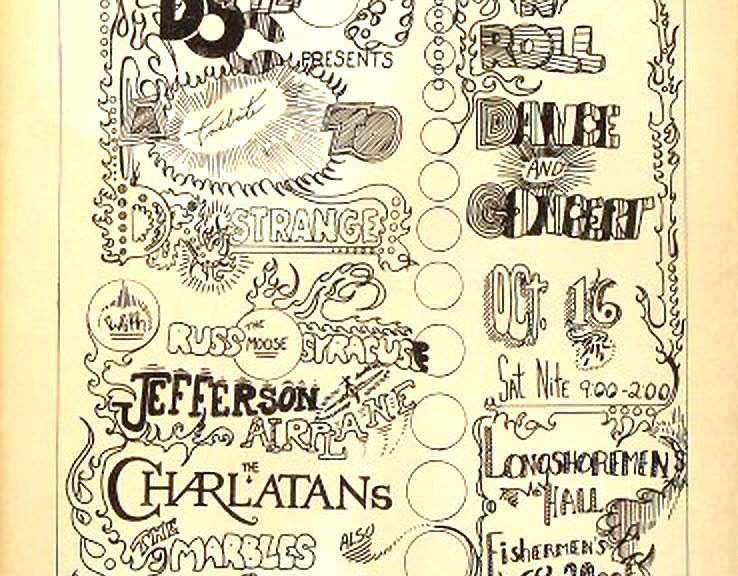 PRESENTS
A Tribute TO
DR. STRANGE
With
RUSS THE MOOSE SYRACUSE
JEFFERSON
AIRPLANE
THE
CHARLATANS
THE
MARBLES
ALSO
'N'
ROLL
DANCE
AND
CONCERT
OCT. 16
Sat Nite 9:00-2:00
LONGSHOREMEN'S
HALL
FISHERMEN'S